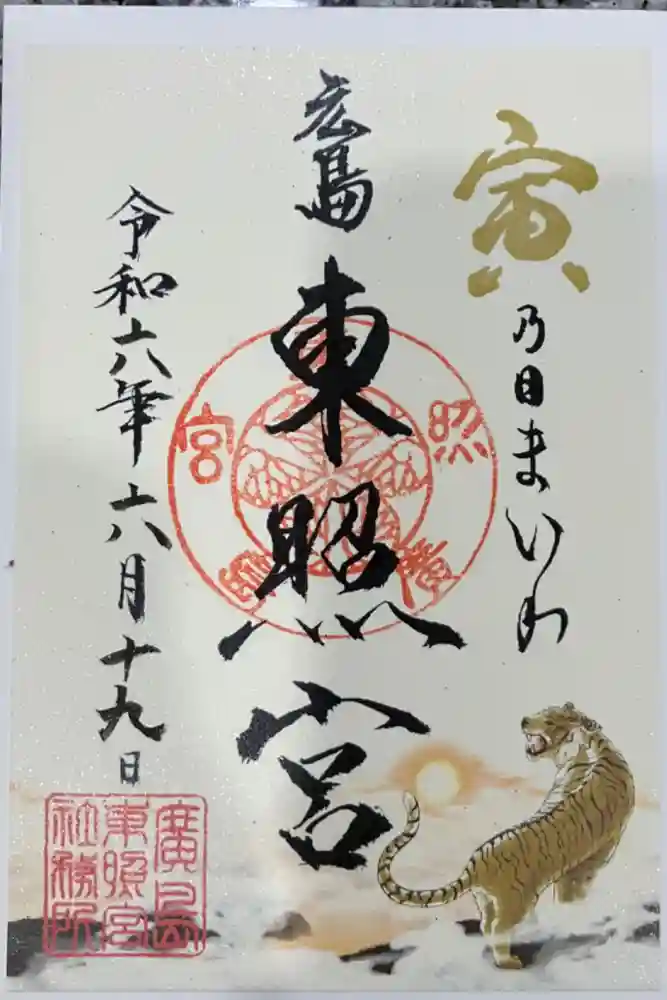 寅乃日まいり
広島
東照宮
令和六年六月十九日
廣島
東照宮
社務所